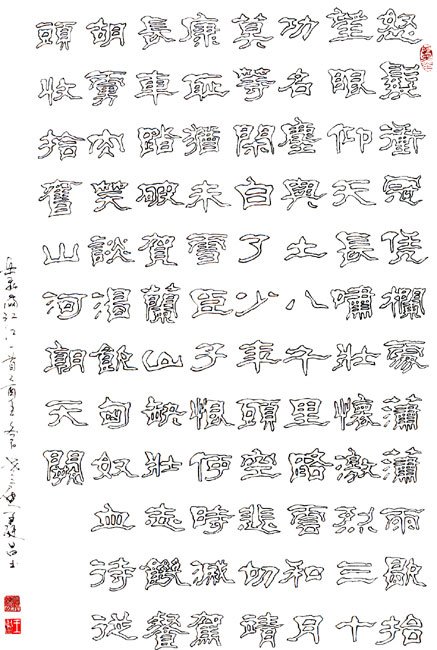 怒髮衝冠憑欄處瀟瀟雨歇抬
望眼仰天長嘯壯懷激烈三十
功名塵與土八千里路雲和月
莫等閑白了少年頭空悲切靖
康恥猶未雪臣子恨何時滅駕
長車踏破賀蘭山缺壯志饑餐
胡虜肉笑談渴飲匈奴血待從
頭收拾舊山河朝天闕
岳飛滿江紅一首